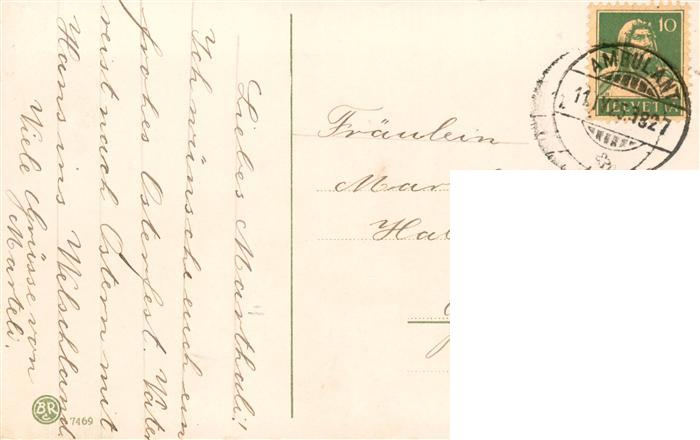 Liebes Märthali!
Ich wünsche euch ein
frohes Osterfest. Vater
reist nach Ostern mit
Hans ins Welschland.
Viele Grüsse von
Marteli.
Fräulein
10
HELVETIA
AMBULANT
7469